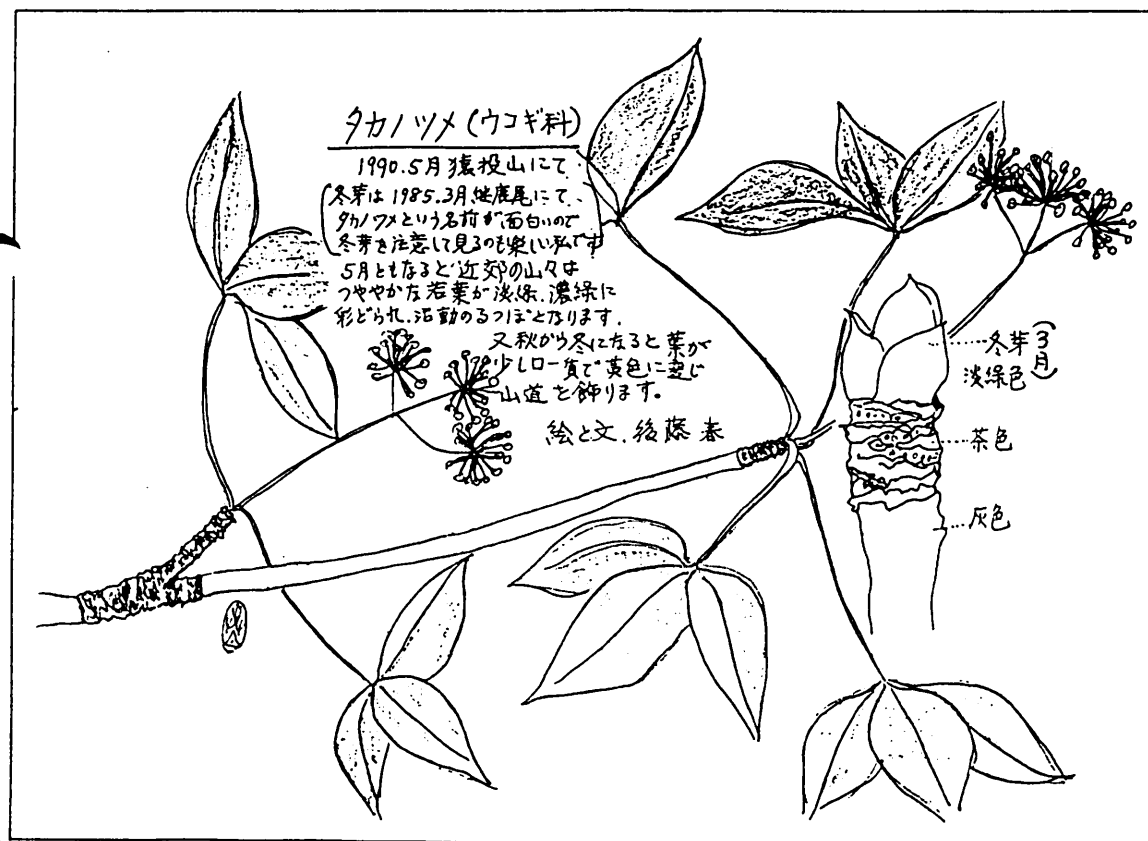 タカノツメ(ウコギ科)
1990.5月猿投山にて
(冬芽は1985.3月継鹿尾にて、
タカノツメという名前が面白いので
冬芽を注意して見るのも楽しい私です)
5月ともなると近郊の山々は
つややかな若葉が淡緑、濃緑に
彩どられ、活動のるつぼとなります。
又秋から冬になると葉が
少しロー質で黄色に変じ
山道を飾ります。
絵と文、後藤 春
冬芽(3月)
淡緑色
茶色
灰色